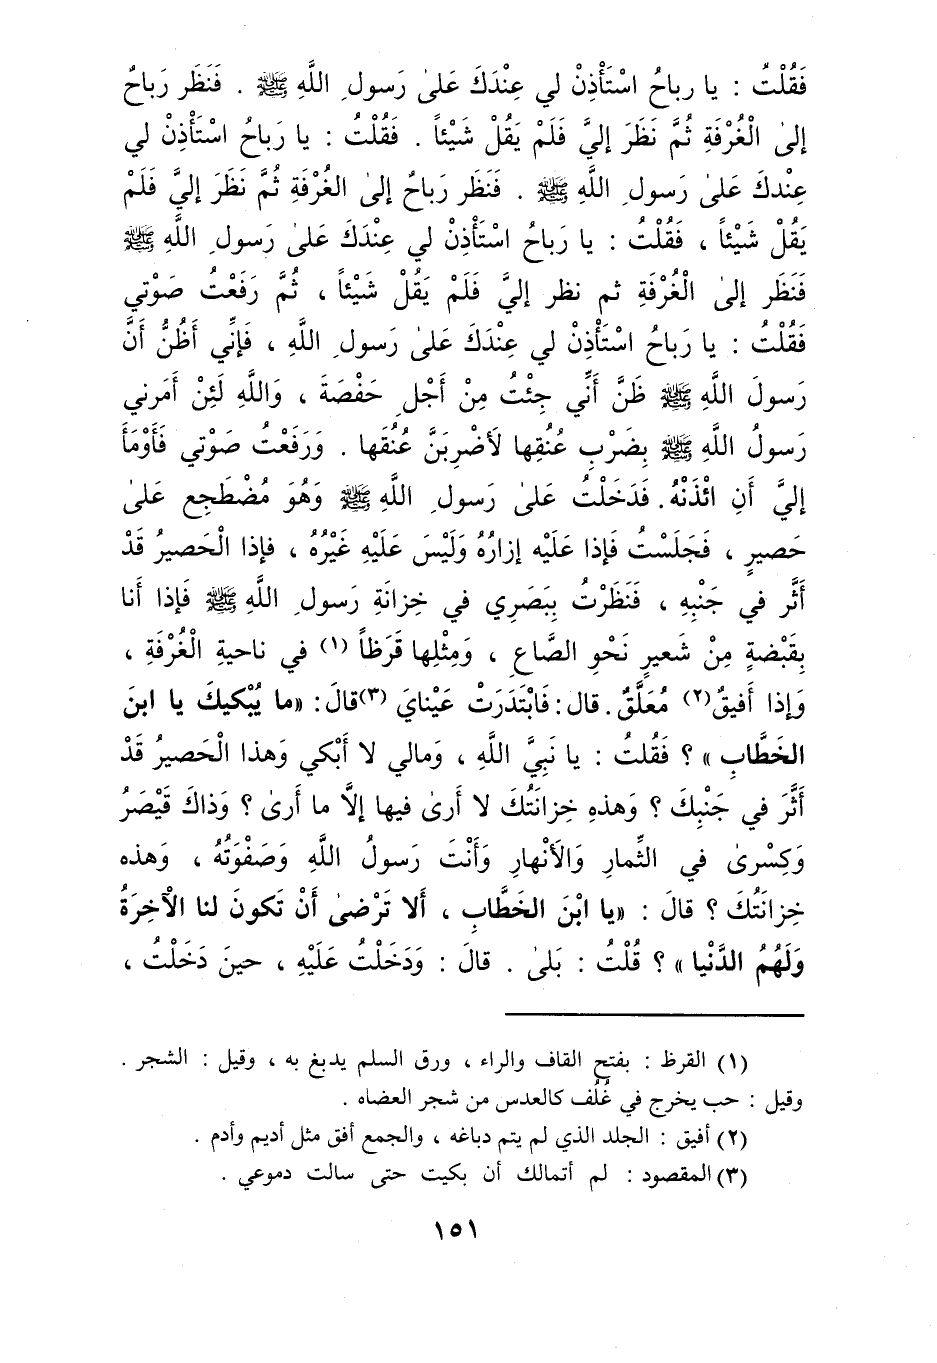 فَقُلْتُ : يا رباحُ اسْتَأْذِنْ لي عِنْدَكَ عَلىٰ رَسولِ اللَّهِ ﷺ . فَنَظَر رَباحُ
إلىٰ الْغُرْفَةِ ثُمَّ نَظَرَ إليَّ فَلَمْ يَقُلْ شَيْئاً . فَقُلْتُ : يا رَباحُ اسْتَأْذِنْ لي
عِنْدكَ عَلىٰ رَسولِ اللَّهِ ﷺ . فَنَظَر رَباحُ إلىٰ الغُرْفَةِ ثُمَّ نَظَرَ إليَّ فَلَمْ
يَقُلْ شَيْئاً ، فَقُلْتُ : يا رَباحُ اسْتَأْذِنْ لي عِنْدَكَ عَلىٰ رَسولِ اللَّهِ ﷺ
فَنَظَر إلىٰ الْغُرْفَةِ ثم نظر إليَّ فَلَمْ يَقُلْ شَيْئاً ، ثُمَّ رَفَعْتُ صَوْتي
فَقُلْتُ : يا رَباحُ اسْتَأْذِنْ لي عِنْدَكَ عَلىٰ رَسولِ اللَّهِ ، فَإنِّي أَظُنُّ أَنَّ
رَسولَ اللَّهِ ﷺ ظَنَّ أَنِّي جِئْتُ مِنْ أَجْلِ حَفْصَةَ ، وَاللَّهِ لَئِنْ أَمَرني
رَسولُ اللَّهِ ﷺ بِضَرْبِ عُنُقِها لَأَضْرِبَنَّ عُنُقَها . وَرَفَعْتُ صَوْتي فَأَوْمَأَ
إليَّ أَنِ ائْذَنْهُ. فَدَخَلْتُ عَلىٰ رَسولِ اللَّهِ ﷺ وَهُوَ مُضْطَجِع عَلىٰ
حَصيرٍ ، فَجَلَسْتُ فَإذا عَلَيْه إزارُهُ وَلَيْسَ عَلَيْهِ غَيْرُهُ ، فإذا الْحَصيرُ قَدْ
أَثَّر في جَنْبِهِ ، فَنَظَرْتُ بِبَصَرِي في خِزانَةِ رَسولِ اللَّهِ ﷺ فَإذا أَنا
بِقَبْضةٍ مِنْ شَعيرٍ نَحْوِ الصَّاعِ ، وَمِثْلِها قَرَظاً (١) في ناحيةِ الْغُرْفَةِ ،
وَإذا أَفيقٌ(٢) مُعَلَّقٌ. قال: فَابْتَدَرَتْ عَيْنايَ (٣)قالَ: «ما يُبْكيكَ يا ابنَ
الخَطَّابِ » ؟ فَقُلتُ : يا نَبِيَّ اللَّهِ ، وَمالي لا أَبْكي وَهذا الْحَصيرُ قَدْ
أَثَّرَ في جَنْبِكَ ؟ وَهذهِ خِزانَتُكَ لا أَرىٰ فيها إلَّا ما أَرىٰ ؟ وَذاكَ قَيْصَرُ
وَكِسْرىٰ في الثِّمارِ وَالأَنْهارِ وَأَنْتَ رَسولُ اللَّهِ وَصَفْوَتُهُ ، وَهذه
خِزانَتُكَ ؟ قالَ : «يا ابْنَ الخَطَّابِ ، أَلا تَرْضىٰ أَنْ تَكونَ لنا الْآخِرَةُ
وَلَهُمُ الدَّنْيا » ؟ قُلْتُ : بَلىٰ . قالَ : وَدَخَلْتُ عَلَيْهِ ، حينَ دَخَلْتُ ،
(١) القرظ : بفتح القاف والراء ، ورق السلم يدبغ به ، وقيل : الشجر .
وقيل : حب يخرج في غُلُف كالعدس من شجر العضاه .
(٢) أفيق : الجلد الذي لم يتم دباغه ، والجمع أفق مثل أديم وأدم .
(٣) المقصود : لم أتمالك أن بكيت حتى سالت دموعي .
١٥١